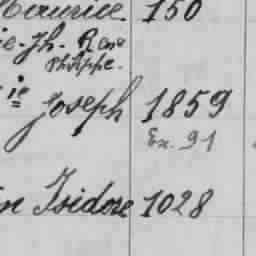 Maurice. 150
ie-Jh. René
Philippe.
ie Joseph 1859
Ex. 91
Isidore 1028